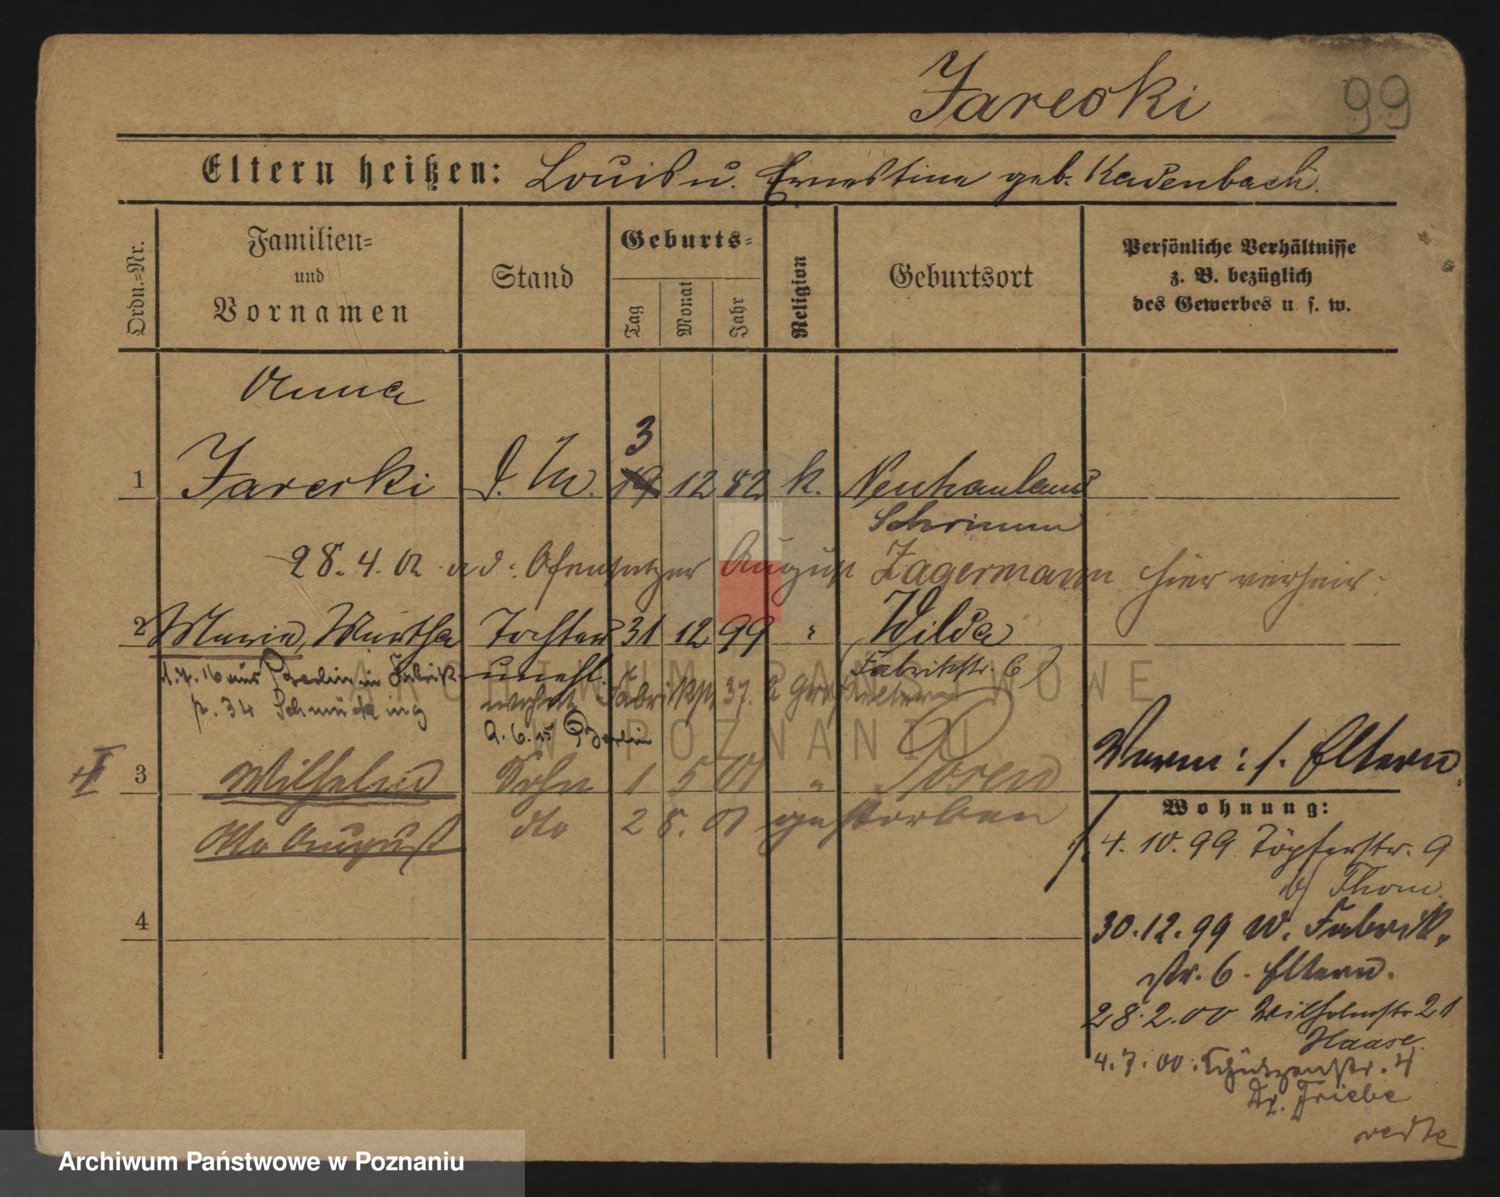 Jarecki 99
Eltern heißen: Louis u. Ernestine geb. Kadenbach.
Ordn.-Nr.
Familien- und Vornamen
Stand
Geburts-
Tag
Monat
Jahr
Religion
Geburtsort
Persönliche Verhältnisse
z. B. bezüglich
des Gewerbes u. s. w.
Anna
3
1 Jarecki D. M. 19 12 82 k. Neuhauland
Schrimm
28. 4. 02 a. d. Ofensetzer August Zagermann hier verheir.
2 Marie, Martha Tochter 31 12 99 " Wilda
unehl. (Fabrikstr. 6)
1.7.16 aus Berlin in Fabrik-
p. 34 Schmücking
wohnt Fabrikstr. 37. b Großeltern
9. 6. 15 Berlin
II 3 Wilhelm Sohn 1 5 01 " Posen
Otto August dto 2 8. 01 gestorben
4
Verm: s. Eltern.
Wohnung:
4. 10. 99 Töpferstr. 9
b/ Thom.
30. 12. 99 W. Fabrik-
str. 6. Eltern.
28. 2. 00 Wilhelmstr 21
Haase.
4. 7. 00: Schützenstr. 4
Dr. Friebe
ARCHIWUM PAŃSTWOWE
W POZNANIU
Archiwum Państwowe w Poznaniu